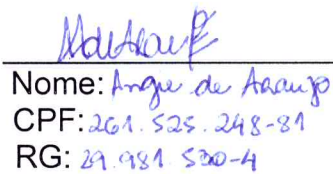 Nome: Angue de Araujo
CPF: 261.525.248-81
RG: 29.981.530-4